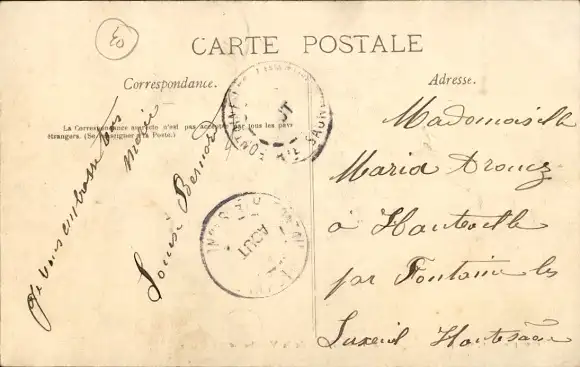 30
CARTE POSTALE
Correspondance.
Adresse.
La Correspondance au recto n'est pas acceptée par tous les pays
étrangers. (Se renseigner à la Poste.)
Je vous embrasse tous
Marie
Louise Bernard
Mademoiselle
Maria
à Hauteville
par Fontaine les
Luxeuil Hautesaône
AOUT